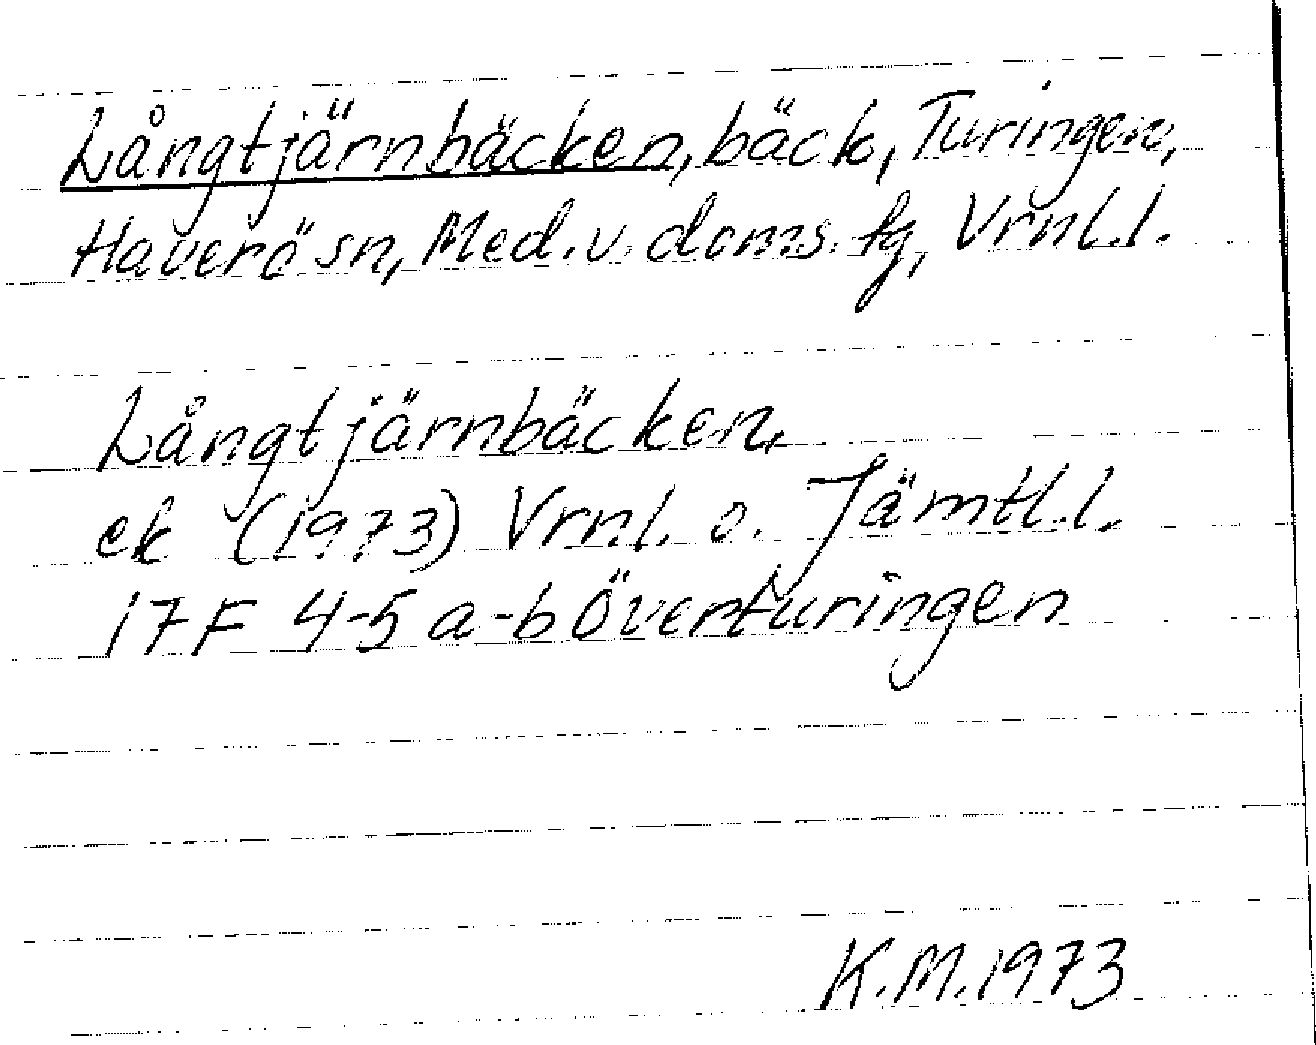 Långtjärnbäcken, bäck, Turingen,
Haverö sn, Med. v. doms. fg, Vrnl. l.
Långtjärnbäcken,
ek (1973) Vrnl. o. Jämtl. l.
17F 4-5 a-b Överturingen
K.M. 1973